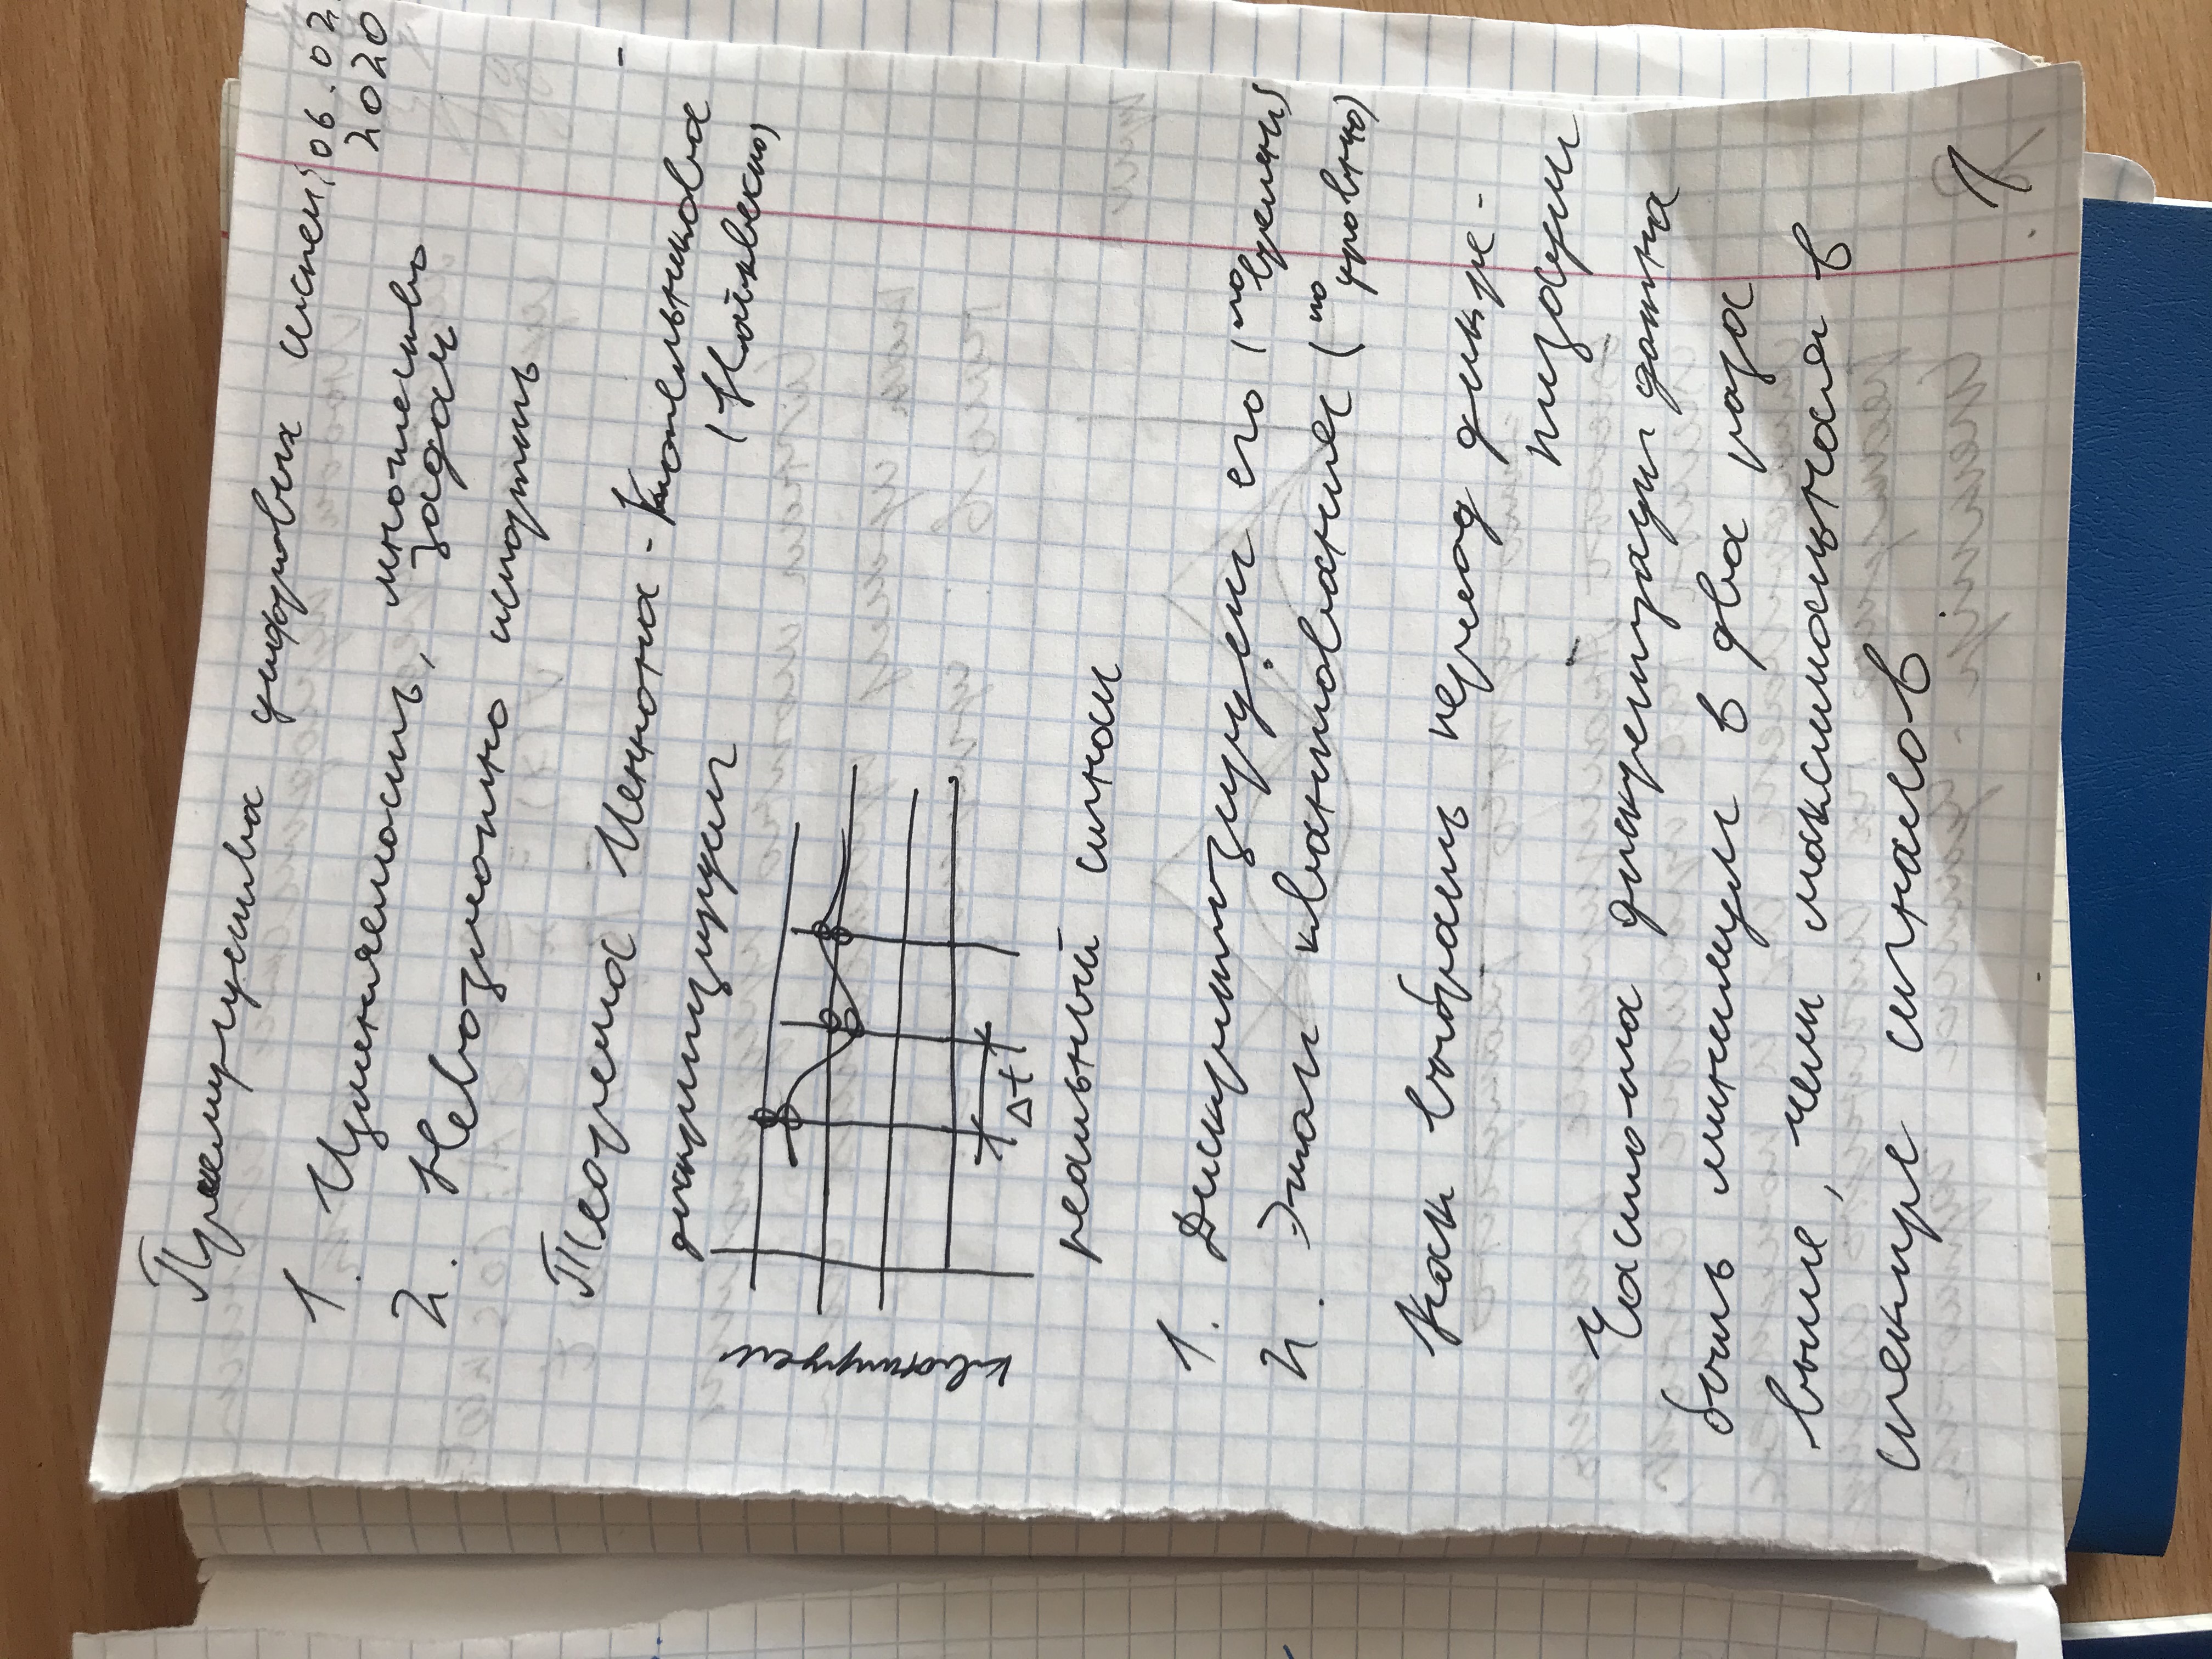 Преимущества цифровых систем:
06.02.
2020
1. Изменяемость, множество
задач
2. Невозможно испортить
Теорема Шеннона - Котельникова
(Найквеста)
дискритизируем
квантируем
Δt
реальный сигнал
1. Дискритизируем его (по времени)
2. Этап квантования (по уровню)
Как выбрать период дискре-
тизации
Частота дискретизации должна
быть минимум в два раза
выше, чем максимальная в
спектре сигналов
1